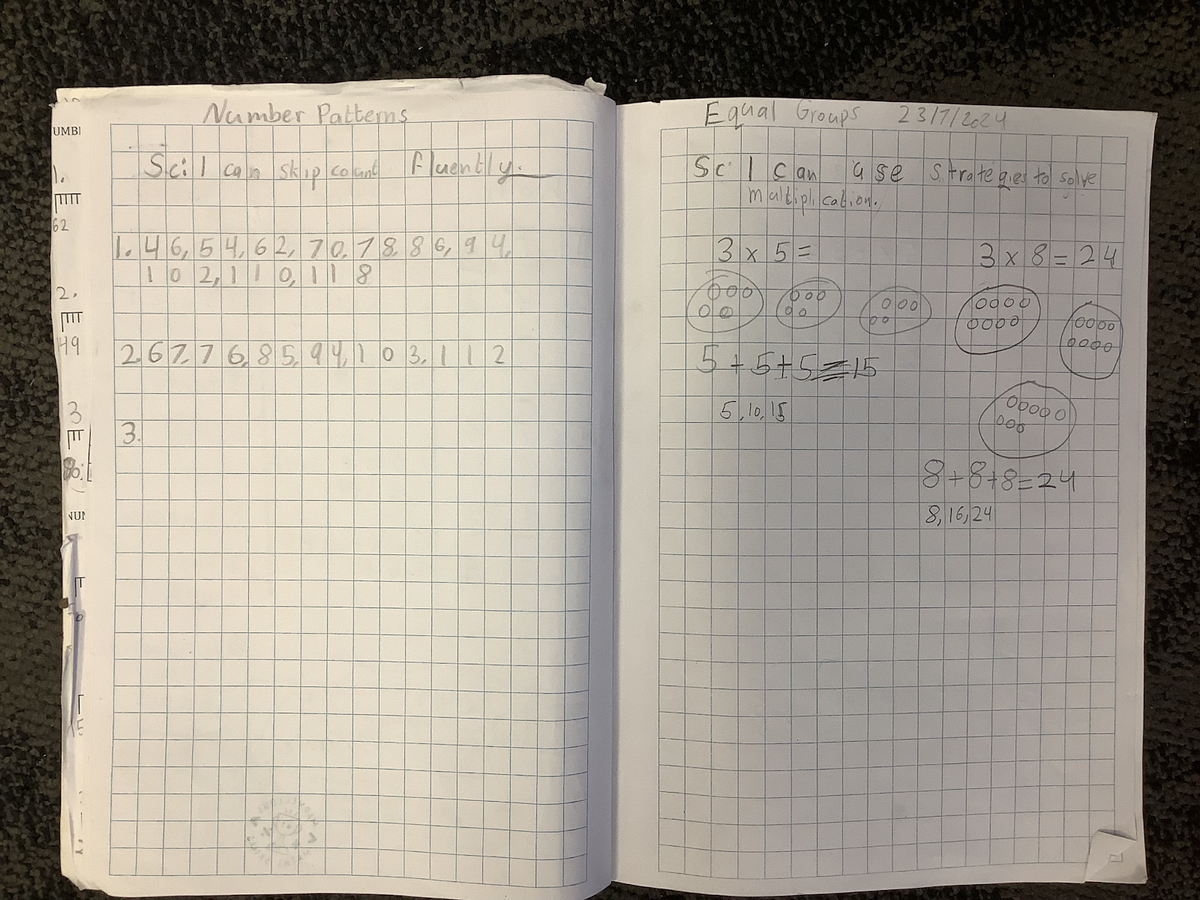 UMBI
1.
62
2.
49
3
NUM
Number Patterns
Sc: I can skip count fluently.
1. 46, 54, 62, 70, 78, 86, 94,
102, 110, 118
2. 67, 76, 85, 94, 103, 112
3.
Equal Groups 23/7/2024
Sc: I can use strategies to solve
multiplication.
3 x 5 =
5 + 5 + 5 = 15
5, 10, 15
3 x 8 = 24
8 + 8 + 8 = 24
8, 16, 24